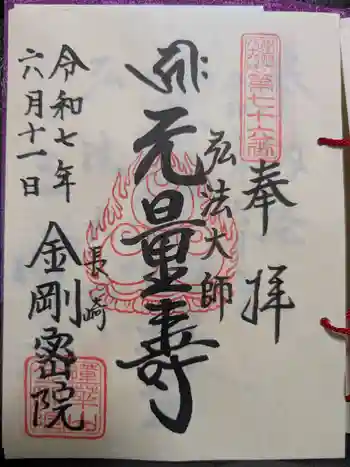 奉拝
第七十六番
弘法大師
无量寿
長崎
金剛密院
令和七年
六月十一日